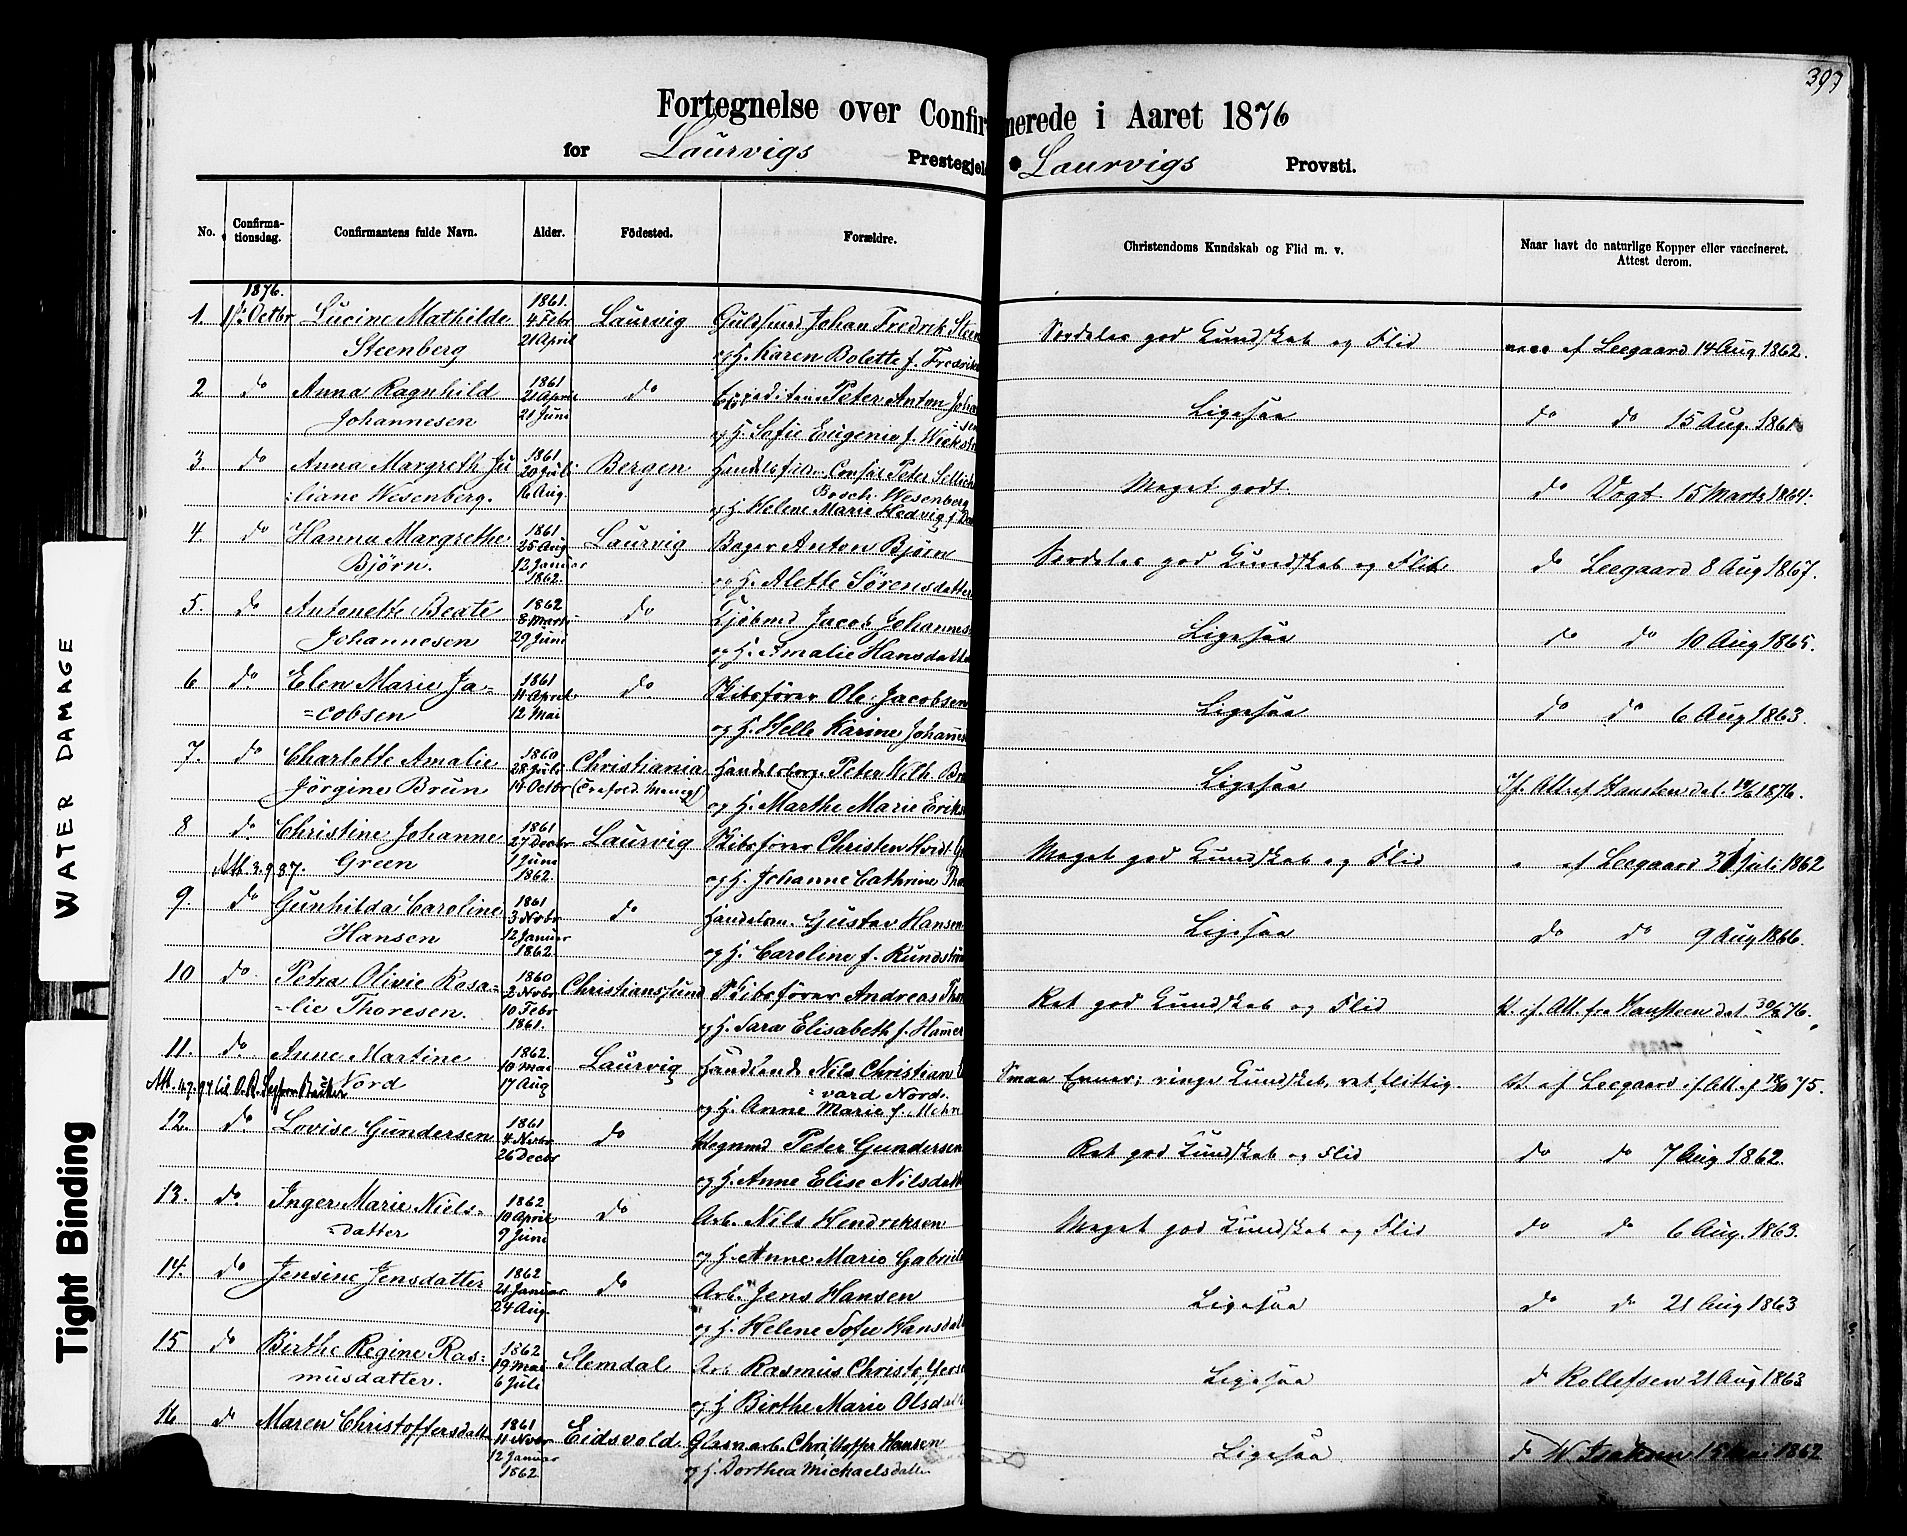 393
Fortegnelse over Confirmerede i Aaret 1876
for Laurvigs Prestegjeld Laurvigs Provsti.
No. Confirmationsdag. Confirmantens fulde Navn. Alder. Födested. Forældre. Christendoms Kundskab og Flid m. v. Naar havt de naturlige Kopper eller vaccineret. Attest derom.
1876. 1861.
1. 1ste Octbr Lucine Mathilde 4 Febr Laurvig Guldsmed Johan Fredrik Steen Særdeles god Kundskab og Flid vacc af Leegaard 14 Aug 1862.
Steenberg 21 April og H. Karen Bolette f. Fredrik
2 do Anna Ragnhild 1861 21 April do Peter Anton Joha Ligesaa do do 15 Aug. 1861
Johannesen 21 Juni og H. Sofie Eugenie f. Wickst
3 do Anna Margreth Ju 1861 20 Juli Bergen Consul Peter Meget godt. do Vogt 15 Marts 1864.
=liane Wesenberg. 16 Aug. Wesenberg
og H. Helene Marie Hedvig f.
4. do Hanna Margrethe 1861 25 Aug Laurvig Bager Anton Bjørn Særdeles god Kundskab og Flid do Leegaard 8 Aug 1867.
Bjørn. 12 Januar 1862. og H. Alette Sørensdatter
5. do Antonette Beate 1862 8 Marts do Jacob Johannes Ligesaa do do 10 Aug 1865.
Johannesen 29 Juni og H. Amalie Hansdatte
6 do Elen Marie Ja= 1861 11 April do Skibsfører Ole Jacobsen Ligesaa do do 6 Aug 1863.
=cobsen 12 Mai og H. Helle Karine Johann
7. do Charlotte Amalie 1860 28 Juli Christiania Handelsborg. Peter Wilh. Br Ligesaa If. Att. af Hansten dat. 14/6 1876.
Jørgine Brun 14 Octbr (Trefold. Menigh) og H. Marthe Marie Eriks
8 do Christine Johanne 1861 27 Decbr Laurvig Skibsfører Christen Hvidt G Meget god Kundskab og Flid " af Leegaard 31 Juli 1862
Att. 3.9.87. Green 1 Juni 1862. og H. Johanne Cathrine Tho
9. do Gunhilda Caroline 1861 3 Novbr do Handelsm. Gustav Hansen Ligesaa do do 9 Aug 1866.
Hansen 12 Januar 1862 og H. Caroline f. Rundstr
10 do Petra Olivie Rosa= 1860 2 Novbr Christianssund Skibsfører Andreas Tho Ret god Kundskab og Flid
=lie Thoresen. 10 Febr 1861. og H. Sara Elisabeth f. Hamer
11. do Anne Martine 1862. 10 Mai Laurvig Handlende Nils Christian Smaa Evner; ringe Kundskab, ret flittig. af Leegaard
Nord 17 Aug =vard Nord.
og H. Anne Marie f. Mohn
12. do Lovise Gundersen 1861 4 Novbr do Vognmd Peter Gundersen Ret god Kundskab og Flid do do 7 Aug 1862.
26 Decbr og H. Anne Elise Nilsdatt
13. do Inger Marie Niels= 1862 10 April do Arb. Nils Hendriksen Meget god Kundskab og Flid do do 6 Aug. 1863.
=datter 9 Juni og H. Anne Marie Gabriel
14. do Jensine Jensdatter 1862 21 Januar do Arb. Jens Hansen Ligesaa do do 21 Aug 1863
24 Aug. og H. Helene Sofie Hansdat
15 do Birthe Regine Ras= 1862 19 Mai Slemdal Arb Rasmus Christ. Ligesaa d Rollefsen 21 Aug 1863
musdatter. 6 Juli og H Birthe Marie Olsdat
16 do Maren Christoffersdatt 1861 11 Novbr Eidsvold. Glasarb. Christoffer Hansen Ligesaa do W. Isaksen 15 Mai 1862
12 Januar 1862 og H. Dorthea Michaelsdatter
WATER DAMAGE
Tight Binding